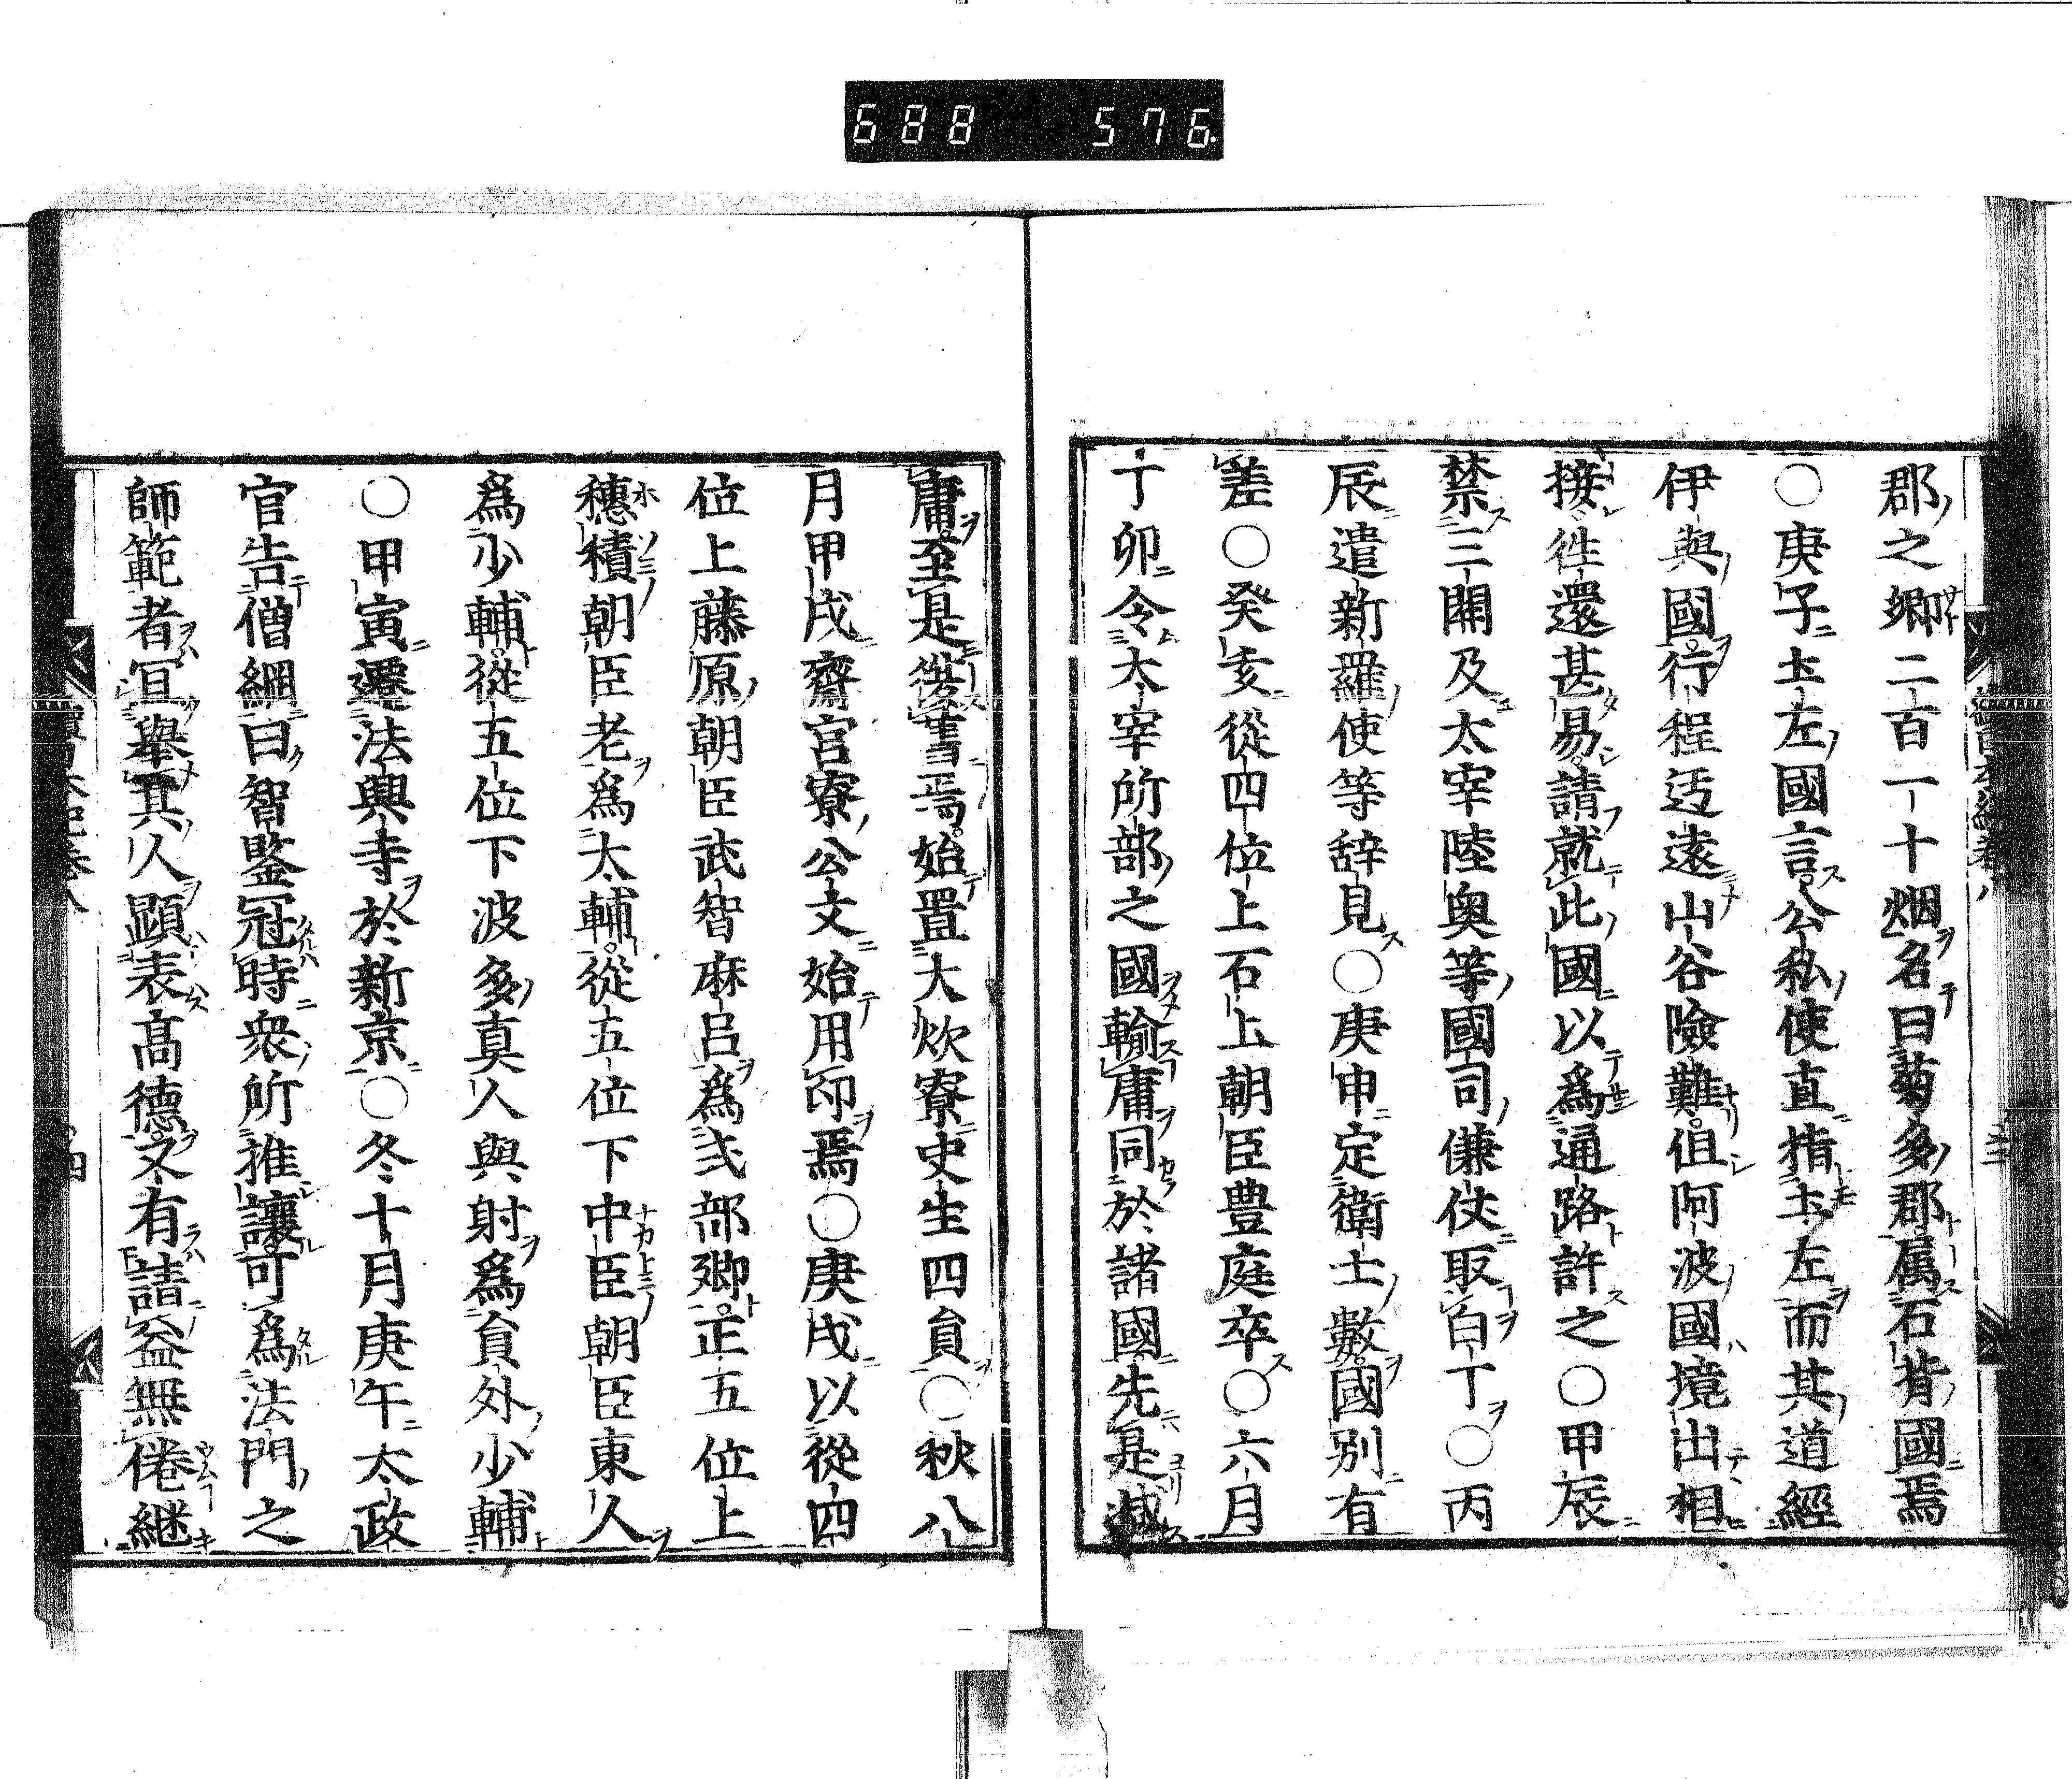 688 576
郡之郷二百一十烟名曰菊多郡属石背國焉
○庚子圡左國言公私使直指圡左而其道經
伊與國行程迃遠山谷險難但阿波國境出相
接徃還甚易請就此國以爲通路許之○甲辰
禁三關及太宰陸奥等國司傔仗取白丁○丙
辰遣新羅使等辞見○庚申定衛士數國別有
差○癸亥從四位上石上朝臣豊庭卒○六月
丁卯令太宰所部之國輸庸同於諸國先是减
庸至是復舊焉始置大炊寮史生四員○秋八
月甲戌齋宮寮公文始用印焉○庚戌以從四
位上藤原朝臣武智麻呂爲式部卿正五位上
穗積朝臣老爲大輔從五位下中臣朝臣東人
爲少輔從五位下波多真人與射爲員外少輔
○甲寅遷法興寺於新京○冬十月庚午太政
官告僧綱曰智鑒冠時衆所推讓可爲法門之
師範者宜舉其人顯表髙德又有請益無倦継